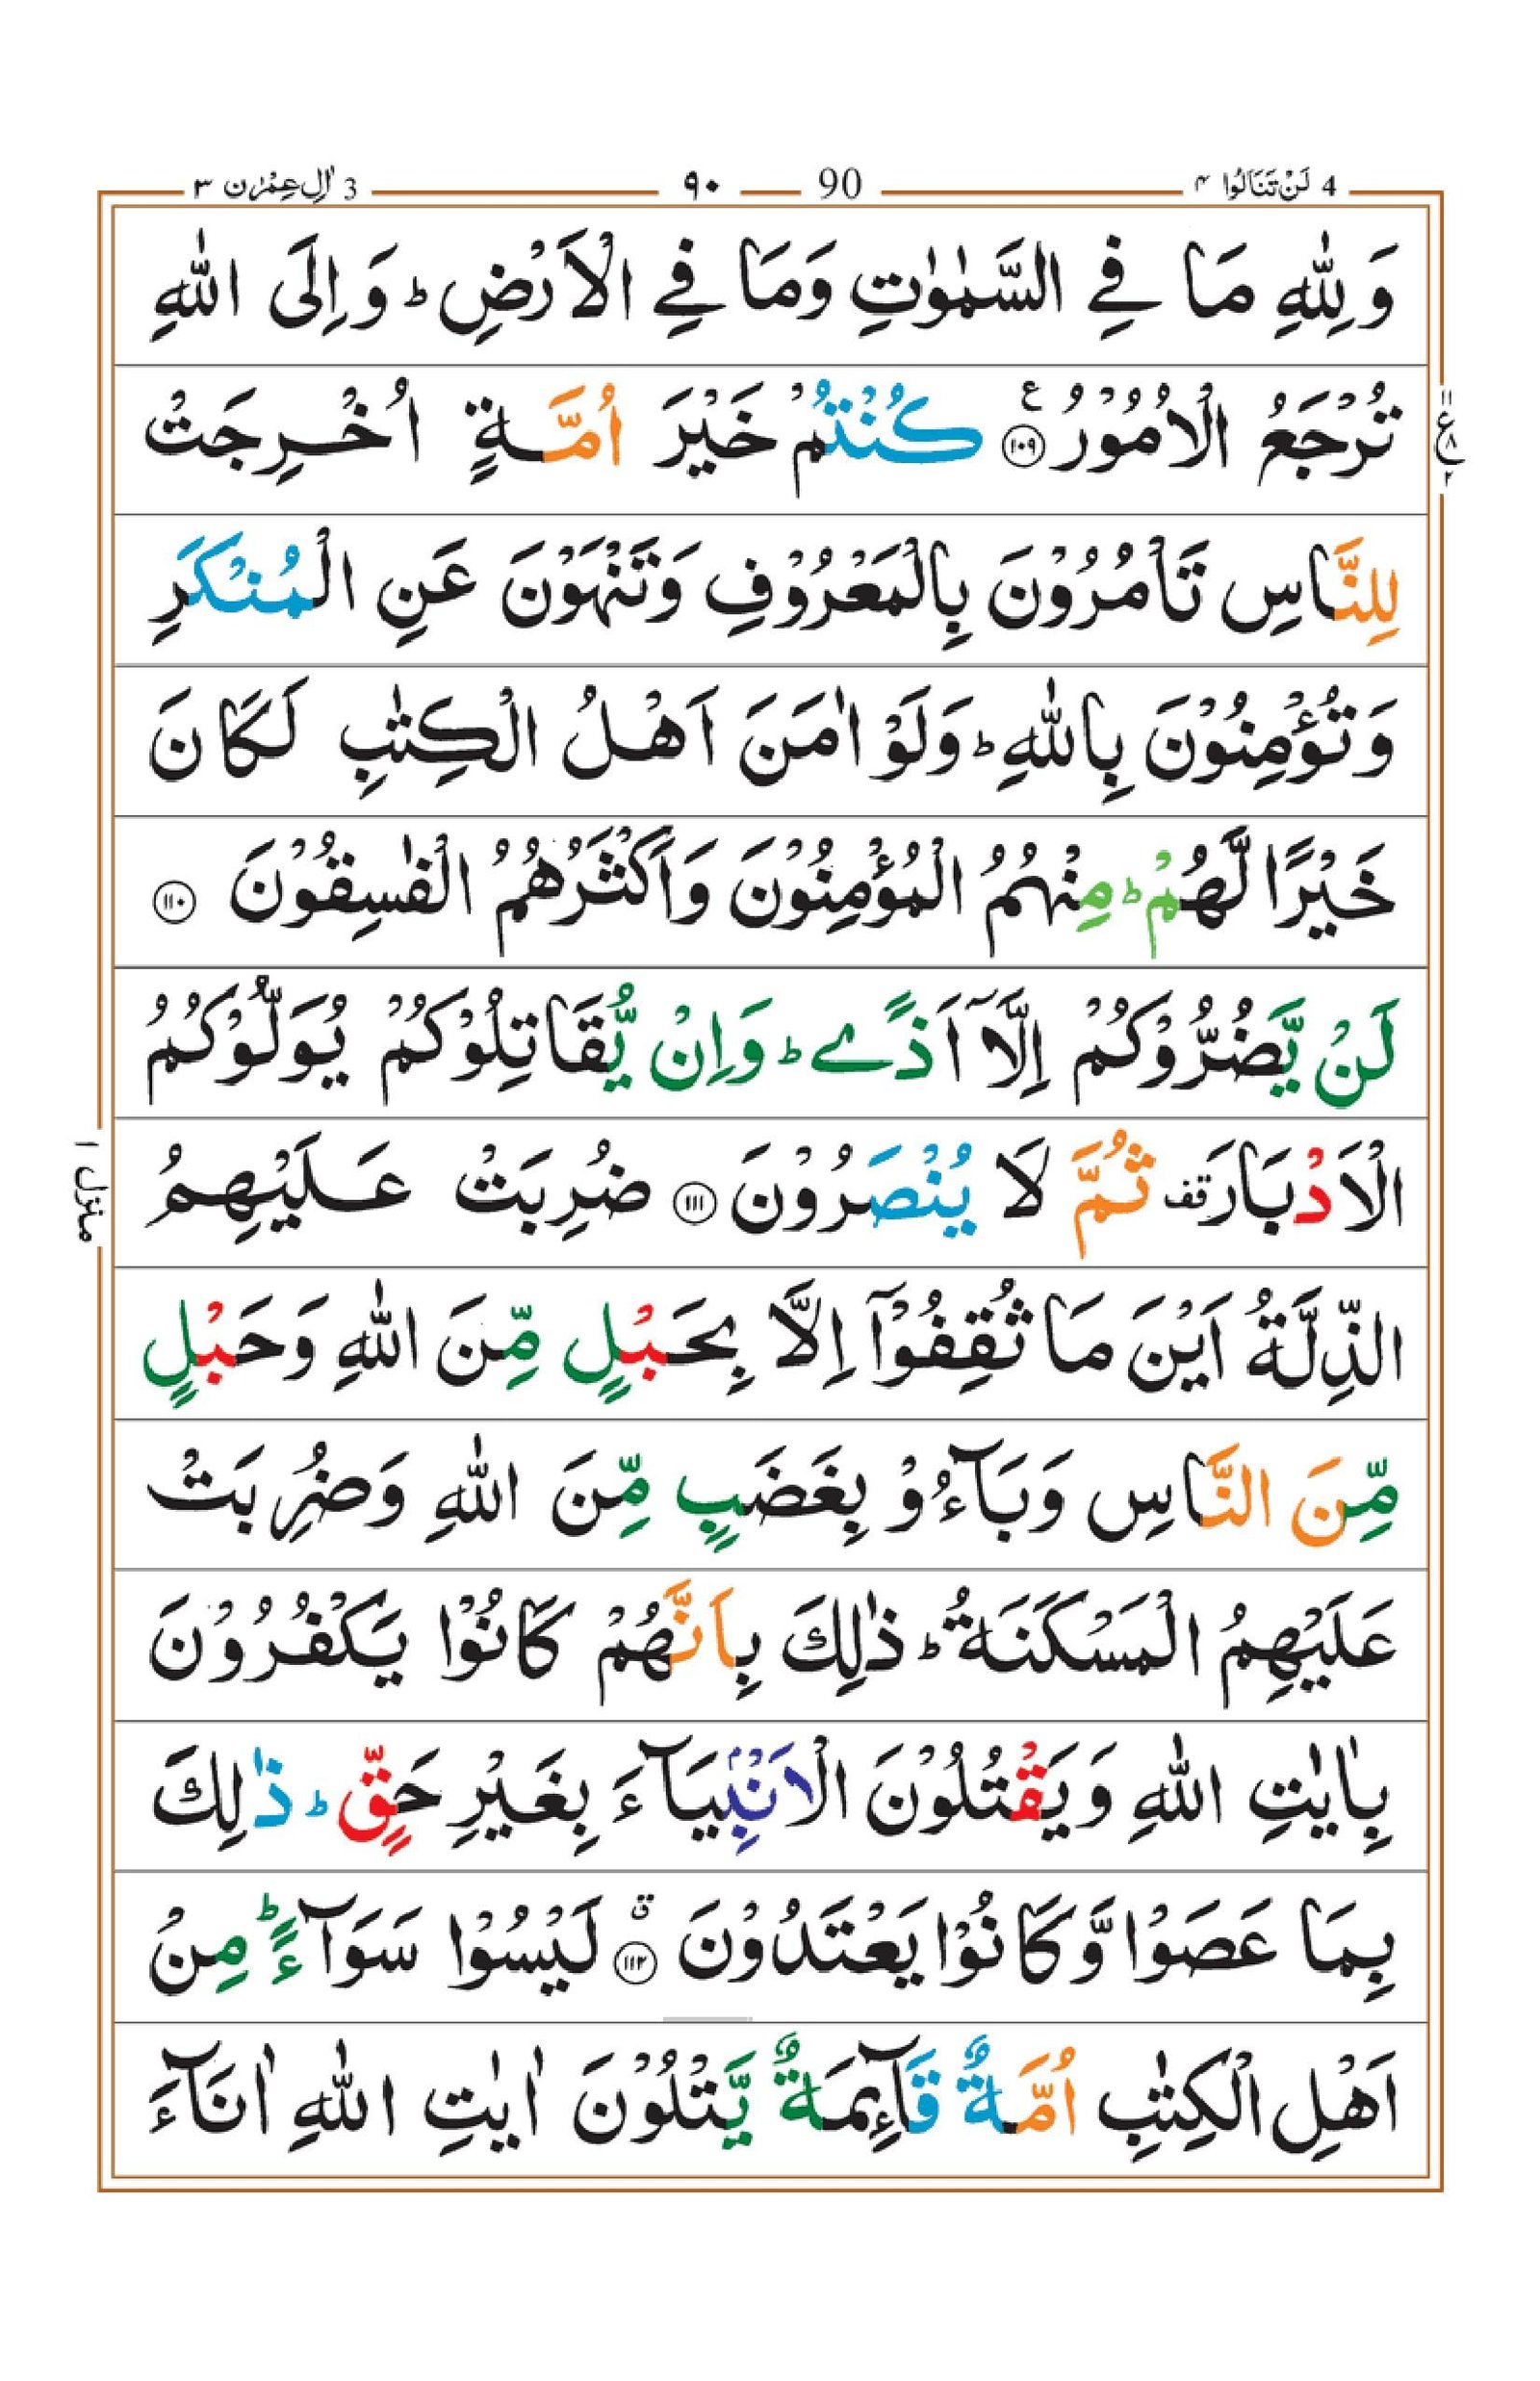 4 لَنْ تَنَالُوا ۴ 90 ۹۰ 3 اٰلِ عِمْرٰن ۳
وَلِلّٰهِ مَا فِي السَّمٰوٰتِ وَمَا فِي الْاَرْضِ ؕ وَاِلَى اللّٰهِ
تُرْجَعُ الْاُمُوْرُ ﴿۱۰۹﴾ ع كُنْتُمْ خَيْرَ اُمَّةٍ اُخْرِجَتْ
لِلنَّاسِ تَاْمُرُوْنَ بِالْمَعْرُوْفِ وَتَنْهَوْنَ عَنِ الْمُنْكَرِ
وَتُؤْمِنُوْنَ بِاللّٰهِ ؕ وَلَوْ اٰمَنَ اَهْلُ الْكِتٰبِ لَكَانَ
خَيْرًا لَّهُمْ ؕ مِنْهُمُ الْمُؤْمِنُوْنَ وَاَكْثَرُهُمُ الْفٰسِقُوْنَ ﴿۱۱۰﴾
لَنْ يَّضُرُّوْكُمْ اِلَّاۤ اَذًے ؕ وَاِنْ يُّقَاتِلُوْكُمْ يُوَلُّوْكُمُ
الْاَدْبَارَ قف ثُمَّ لَا يُنْصَرُوْنَ ﴿۱۱۱﴾ ضُرِبَتْ عَلَيْهِمُ
الذِّلَّةُ اَيْنَ مَا ثُقِفُوْۤا اِلَّا بِحَبْلٍ مِّنَ اللّٰهِ وَحَبْلٍ
مِّنَ النَّاسِ وَبَآءُوْ بِغَضَبٍ مِّنَ اللّٰهِ وَضُرِبَتْ
عَلَيْهِمُ الْمَسْكَنَةُ ؕ ذٰلِكَ بِاَنَّهُمْ كَانُوْا يَكْفُرُوْنَ
بِاٰيٰتِ اللّٰهِ وَيَقْتُلُوْنَ الْاَنْۢبِيَآءَ بِغَيْرِ حَقٍّ ؕ ذٰلِكَ
بِمَا عَصَوْا وَّكَانُوْا يَعْتَدُوْنَ ﴿۱۱۲﴾ لَيْسُوْا سَوَآءً ؕ مِنْ
اَهْلِ الْكِتٰبِ اُمَّةٌ قَآئِمَةٌ يَّتْلُوْنَ اٰيٰتِ اللّٰهِ اٰنَآءَ
منزل ۱